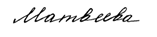 Матвеева